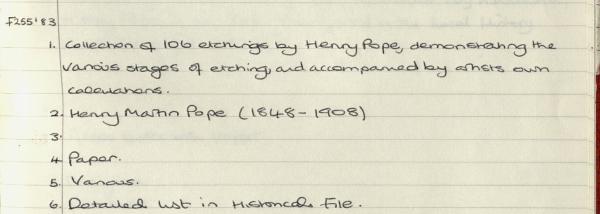 F255'83
1. Collection of 106 etchings by Henry Pope, demonstrating the
various stages of etching, and accompanied by artists own
calculations.
2. Henry Martin Pope (1848-1908)
3.
4. Paper.
5. Various.
6. Detailed list in Historical File.